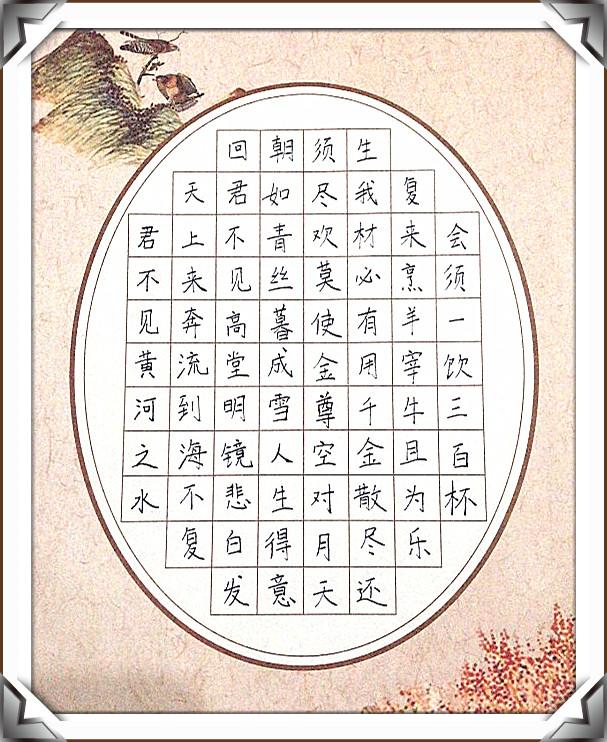 君不见黄河之水
天上来奔流到海不复
回君不见高堂明镜悲白发
朝如青丝暮成雪人生得意
须尽欢莫使金尊空对月天
生我材必有用千金散尽还
复来烹羊宰牛且为乐
会须一饮三百杯